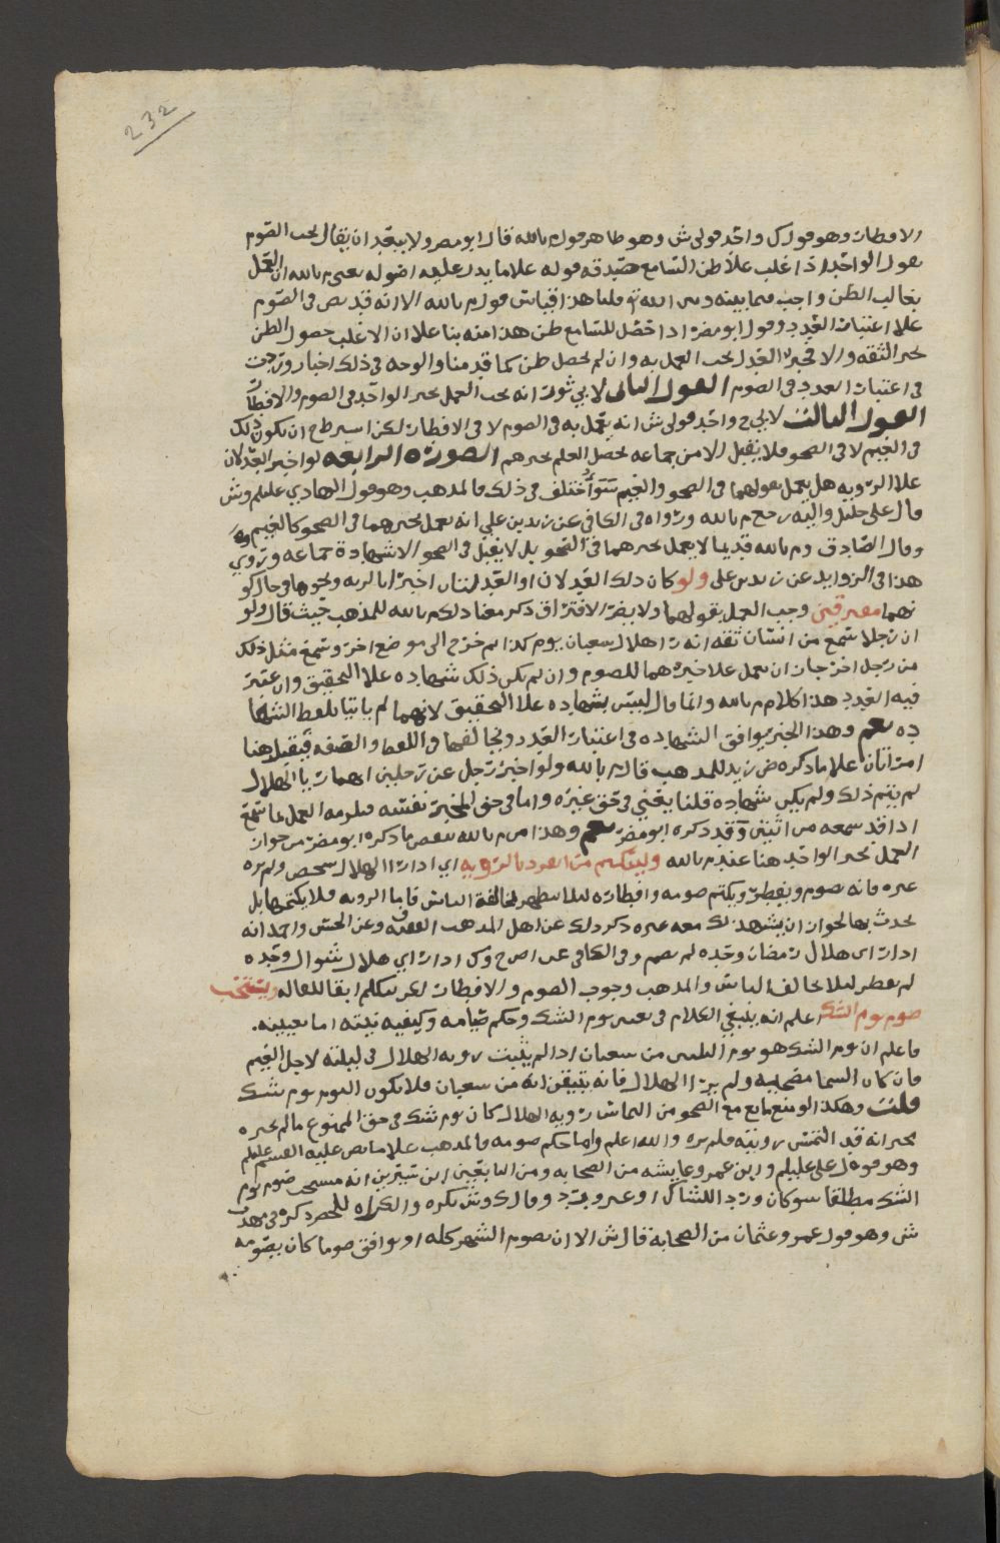 232
الافطار وهو قول ك واحد قولي ش وهو ظاهر قول م بالله قال ابو مضر ولا يبعد ان يقال يجب الصوم
بقول الواحد اذا غلب على ظن السامع صدقه قوله علا ما يدل عليه اصوله يعني م بالله ان العمل
بغالب الظن واجب فيما بينه وبين الله قلنا هذا قياس قول م بالله الا انه قد نص في الصوم
علا اعتبار العدد وقول ابو مضر اذا حصل للسامع ظن هذا منه بنا علا ان الاغلب حصول الظن
بخبر الثقه والا فخبر العدل يجب العمل به وان لم يحصل ظن كما قدمنا والوجه في ذلك اخبار وردت
في اعتبار العدد في الصوم القول الثاني لابي ثور انه يجب العمل بخبر الواحد في الصوم والافطار
القول الثالث لابي ح واحد قولي ش انه يعمل به في الصوم لا في الافطار لكن اشترط ح ان يكون ذلك
في الغيم لا في الصحو فلا يقبل الا من جماعه يحصل العلم بخبرهم الصوره الرابعه لو اخبر العدلان
علا الرويه هل يعمل بقولهما في الصحو والغيم سوآ اختلف في ذلك فالمذهب وهو قول الهادي عليلم وش
قال علي خليل واليه رجع م بالله ورواه في الكافي عن زيد بن علي انه يعمل بخبرهما في الصحو كالغيم
وقال الصادق وم بالله قديما لا يعمل بخبرهما في الصحو بل لا يقبل في الصحو الا شهادة جماعه وروي
هذا في الزوايد عن زيد بن علي ولو كان ذلك العدلان او العدلتان اخبرا بالرويه ونحوها في حال كو
نهما مفترقين وجب العمل بقولهما ولا يضر الافتراق ذكر معنا ذلك م بالله للمذهب حيث قال ولو
ان رجلا سمع من انسان ثقه انه را هلال شعبان يوم كذا ثم خرج الى موضع اخر وسمع مثل ذلك
من رجل اخر جاز ان يعمل علا خبرهما للصوم وان لم يكن ذلك شهاده علا التحقيق وان اعتبر
فيه العدد هذا كلام م بالله وانما قال ليس بشهاده علا التحقيق لانهما لم ياتيا بلفظ الشها
ده نعم وهذا الخبر يوافق الشهاده في اعتبار العدد ويخالفها في اللفظ والصفه فيقبل هنا
امراتان علا ما ذكره ض زيد للمذهب قال م بالله ولو اخبر رجل عن رجلين انهما رايا الهلال
لم يتم ذلك ولم يكن شهاده قلنا يعني في حق غيره واما في حق المخبر نفسه فيلزمه العمل بما سمع
اذا قد سمعه من اثنين وقد ذكره ابو مضر نعم وهذا من م بالله ينقض ما ذكره ابو مضر من جواز
العمل بخبر الواحد هنا عند م بالله وليتكتم من انفرد بالرويه اي اذا را الهلال شخص ولم يره
غيره فانه يصوم ويفطر ويكتم صومه وافطاره لئلا يظهر مخالفة الناس فاما الرويه فلا يكتمها بل
يحدث بها لجواز ان يشهد بذلك معه غيره ذكر ذلك عن اهل المذهب الفقيه وعن الحسن واحمد انه
اذا راى هلال رمضان وحده لم يصم وفي الكافي عن اص ح وك اذا راى هلال شوال وحده
لم يفطر لئلا يخالف الناس والمذهب وجوب الصوم والافطار لكن يتكتم ابقا للقاله ويستحب
صوم يوم الشك اعلم انه ينبغي الكلام في تعيين يوم الشك وحكم صيامه وكيفيه نيته اما تعيينه.
فاعلم ان يوم الشك هو يوم الثلاثين من شعبان اذا لم يثبت رويه الهلال في ليلته لاجل الغيم
فان كان السما مصحيه ولم ير الهلال فانه يتيقن انه من شعبان فلا يكون اليوم يوم شك
قلت وهكذا لو منع مانع مع الصحو من التماس رويه الهلال كان يوم شك في حق الممنوع ما لم يخبره
مخبر انه قد التمس رويته فلم يره والله اعلم واما حكم صومه فالمذهب علا ما نص عليه القسم عليلم
وهو قول علي عليلم وابن عمر وعايشه من الصحابه ومن التابعين ابن سيرين انه مستحب صوم يوم
الشك مطلقا سوا كان وردا للشاك او غير ورد وقال ك وش يكره والكراه للحصر ذكره في مهذب
ش وهو قول عمر وعثمان من الصحابة قال ش الا ان يصوم الشهر كله او يوافق صوما كان يصومه